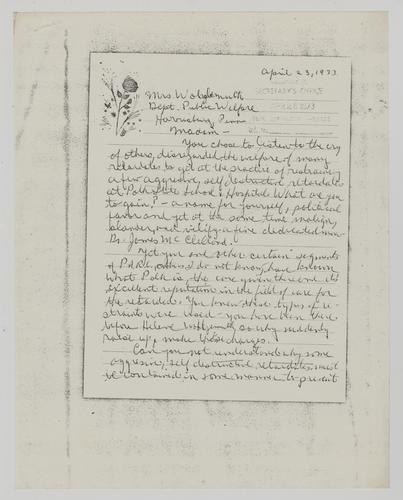 April 23, 1973
Mrs Wohlgemuth
SECRETARY'S OFFICE
Dept. Public Welfare
Harrisburg Penna
Madam -
You chose to listen to the cry
of others, disregarded the welfare of many
retardates to get at the practice of restraining
a few aggressive, self destructive retardates
at Polk State School & Hospital. What are you
to gain? - a name for yourself, political
favor and yet at the same time malign,
slander, and vilify a fine dedicated man
Dr. James McClelland.
Yet you and other certain segments
of Polk, critics do not know, have known
what Polk is, the care given there and its
excellent reputation in the field of care for
the retarded. You knew these types of re-
straints were used - you have been there
before Helene Wohlgemuth so why suddenly
raise up & make these charges.
Can you not understand why some
aggressive, self destructive retardates must
be contained in some manner to prevent